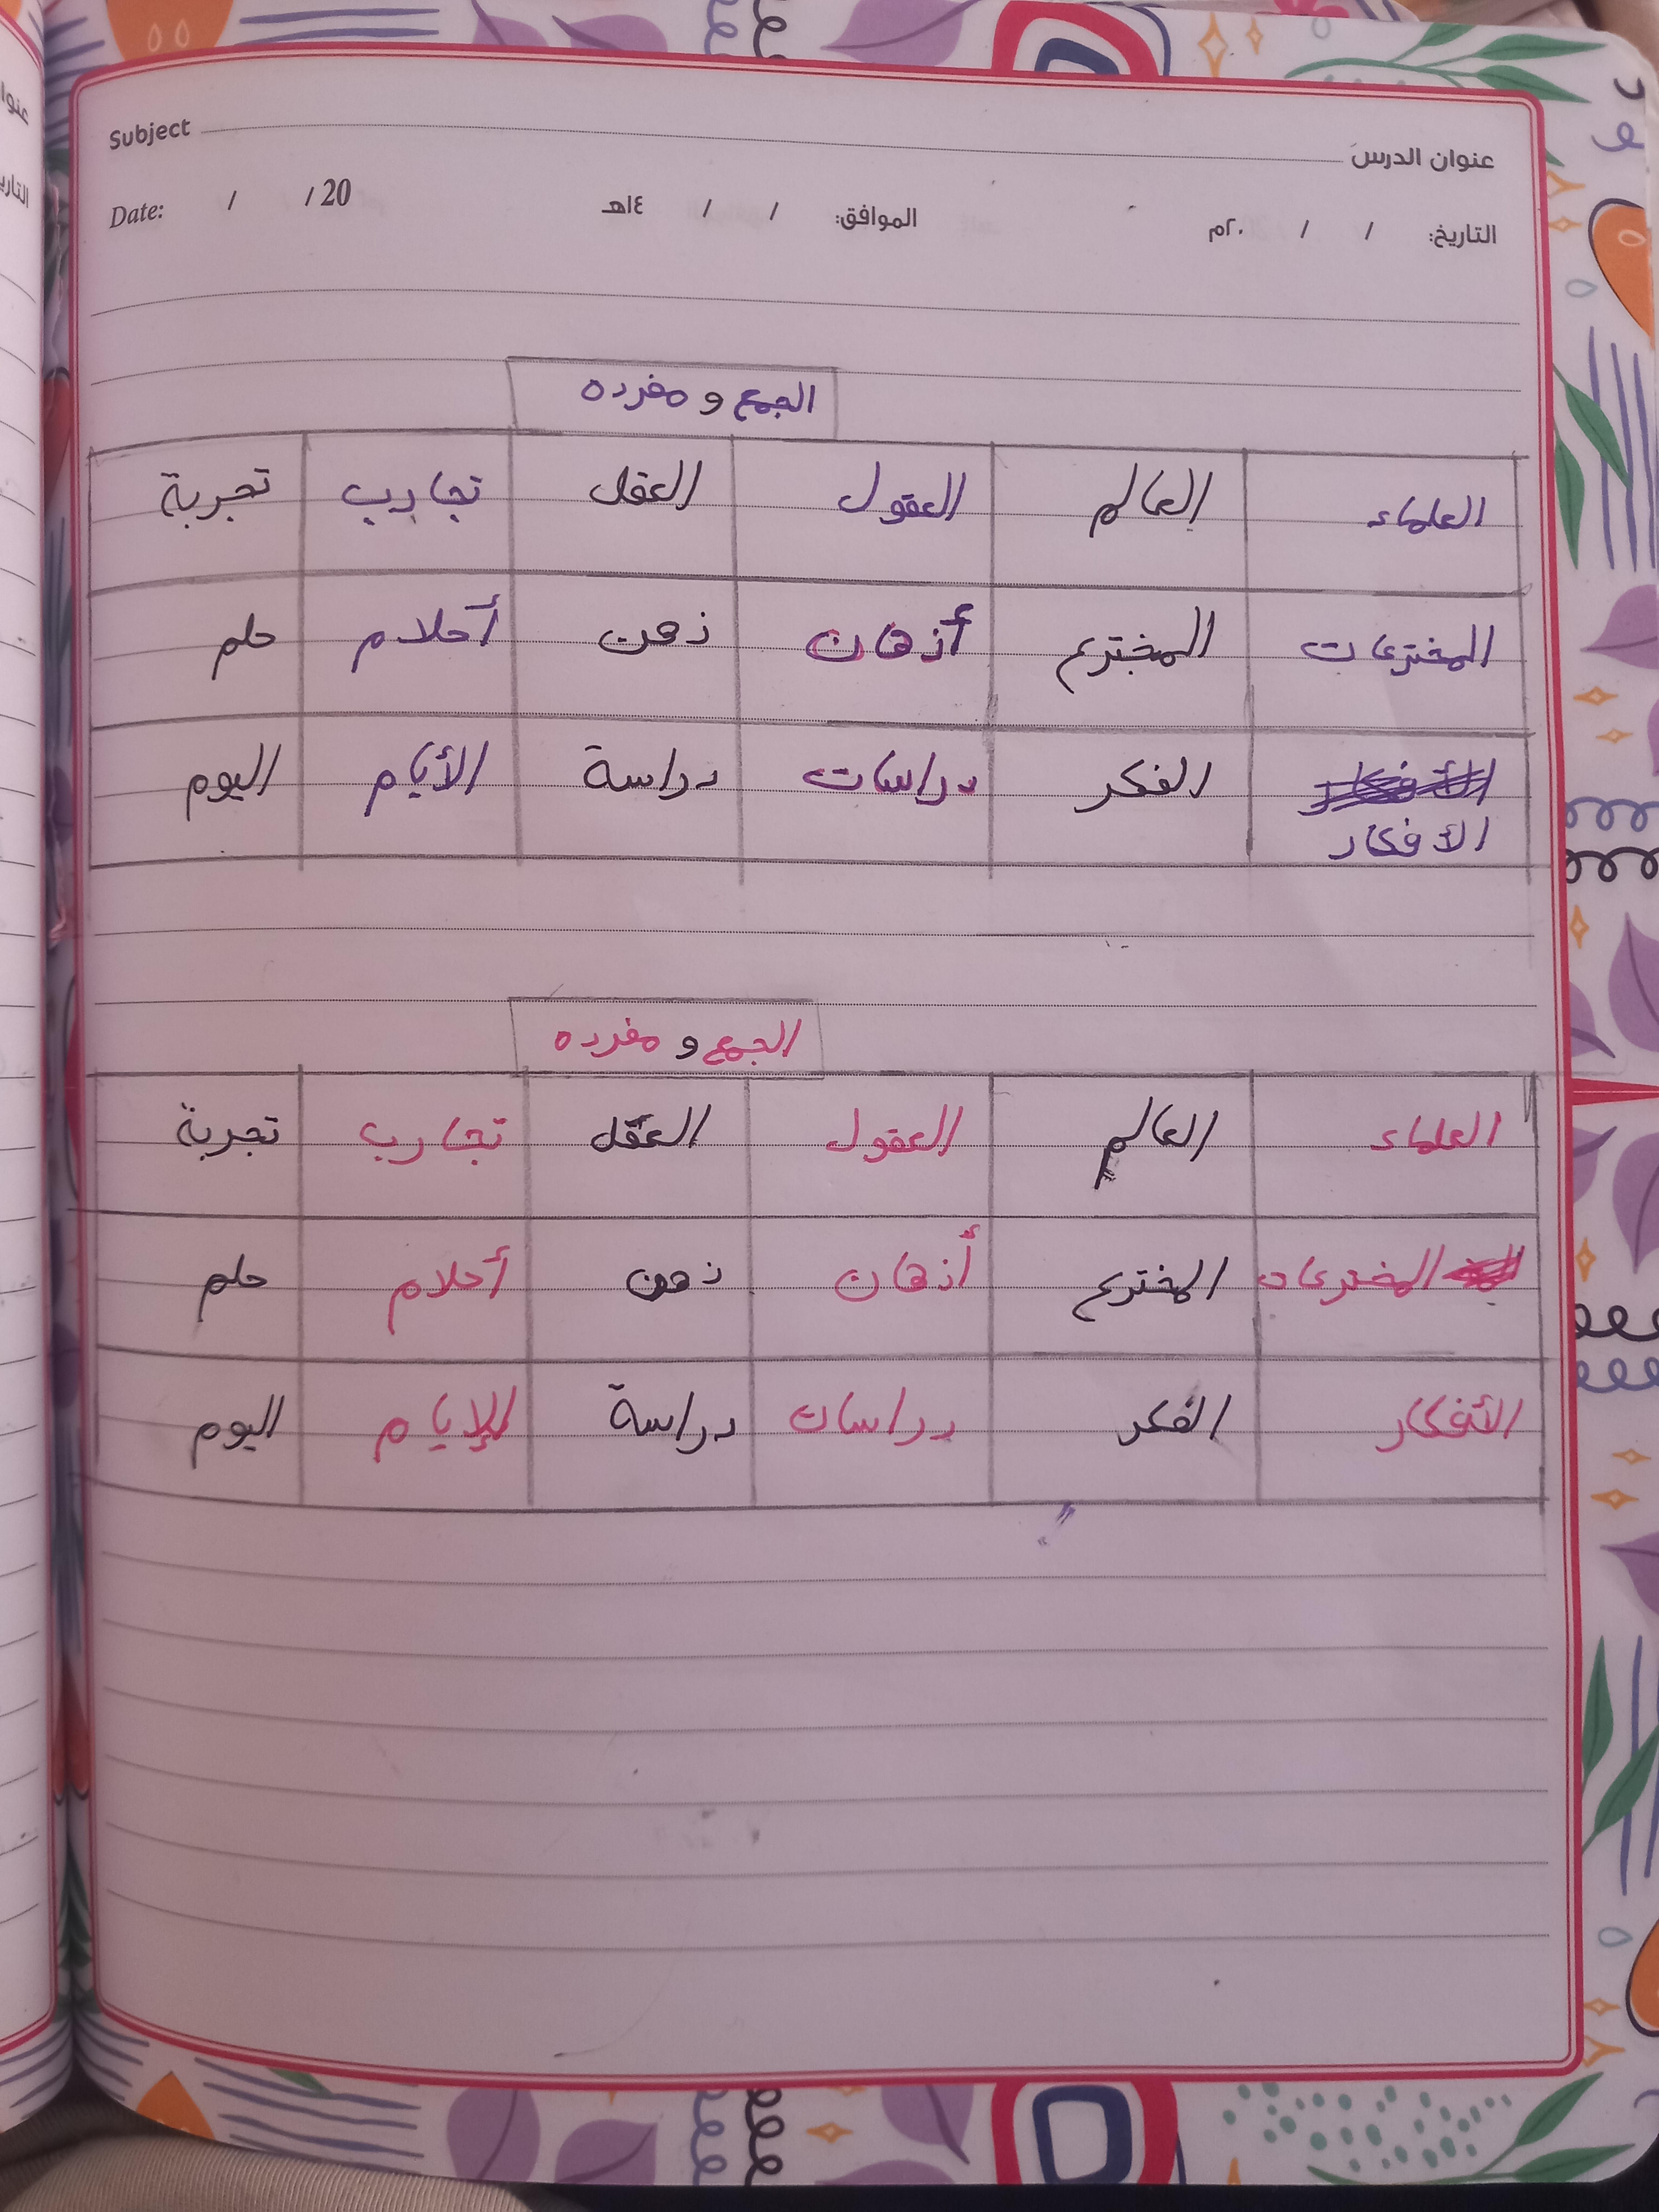 عنوان الدرس Subject
التاريخ: / / ٢٠م الموافق: / / ١٤هـ Date: / / 20
الجمع و مفرده
العلماء العالم العقول العقل تجارب تجربة
المخترعات المخترع أذهان ذهن أحلام حلم
الفكر دراسات دراسة الأيام اليوم
الأفكار
الجمع و مفرده
العلماء العالم العقول العقل تجارب تجربة
المخترعات المخترع أذهان ذهن أحلام حلم
الأفكار الفكر دراسات دراسة الإيام اليوم